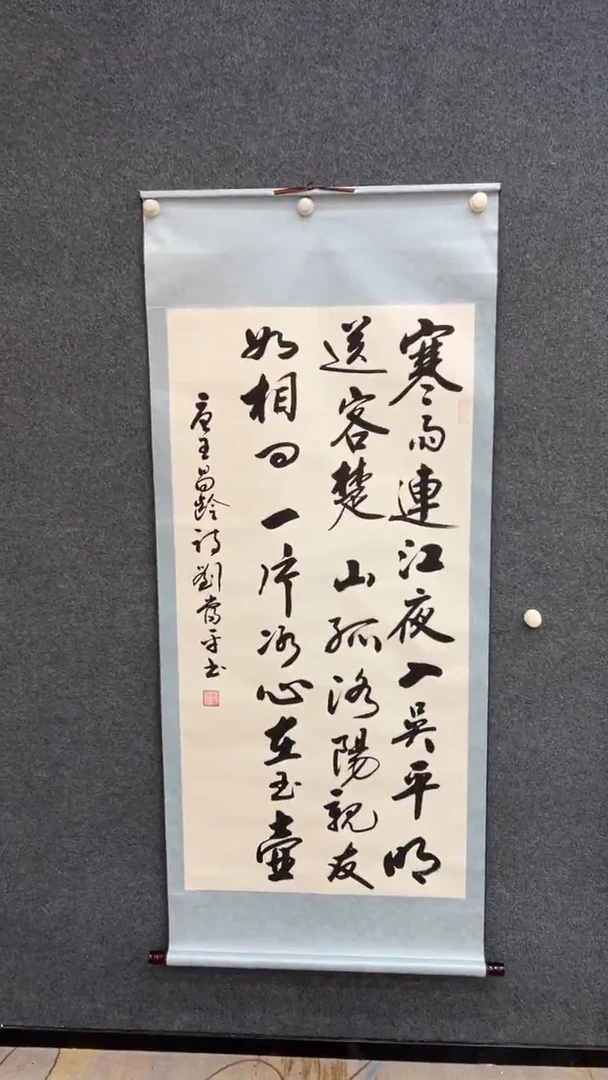 寒雨連江夜入吳平明
送客楚山孤洛陽親友
如相问一片冰心在玉壺
唐王昌龄诗劉喬平书